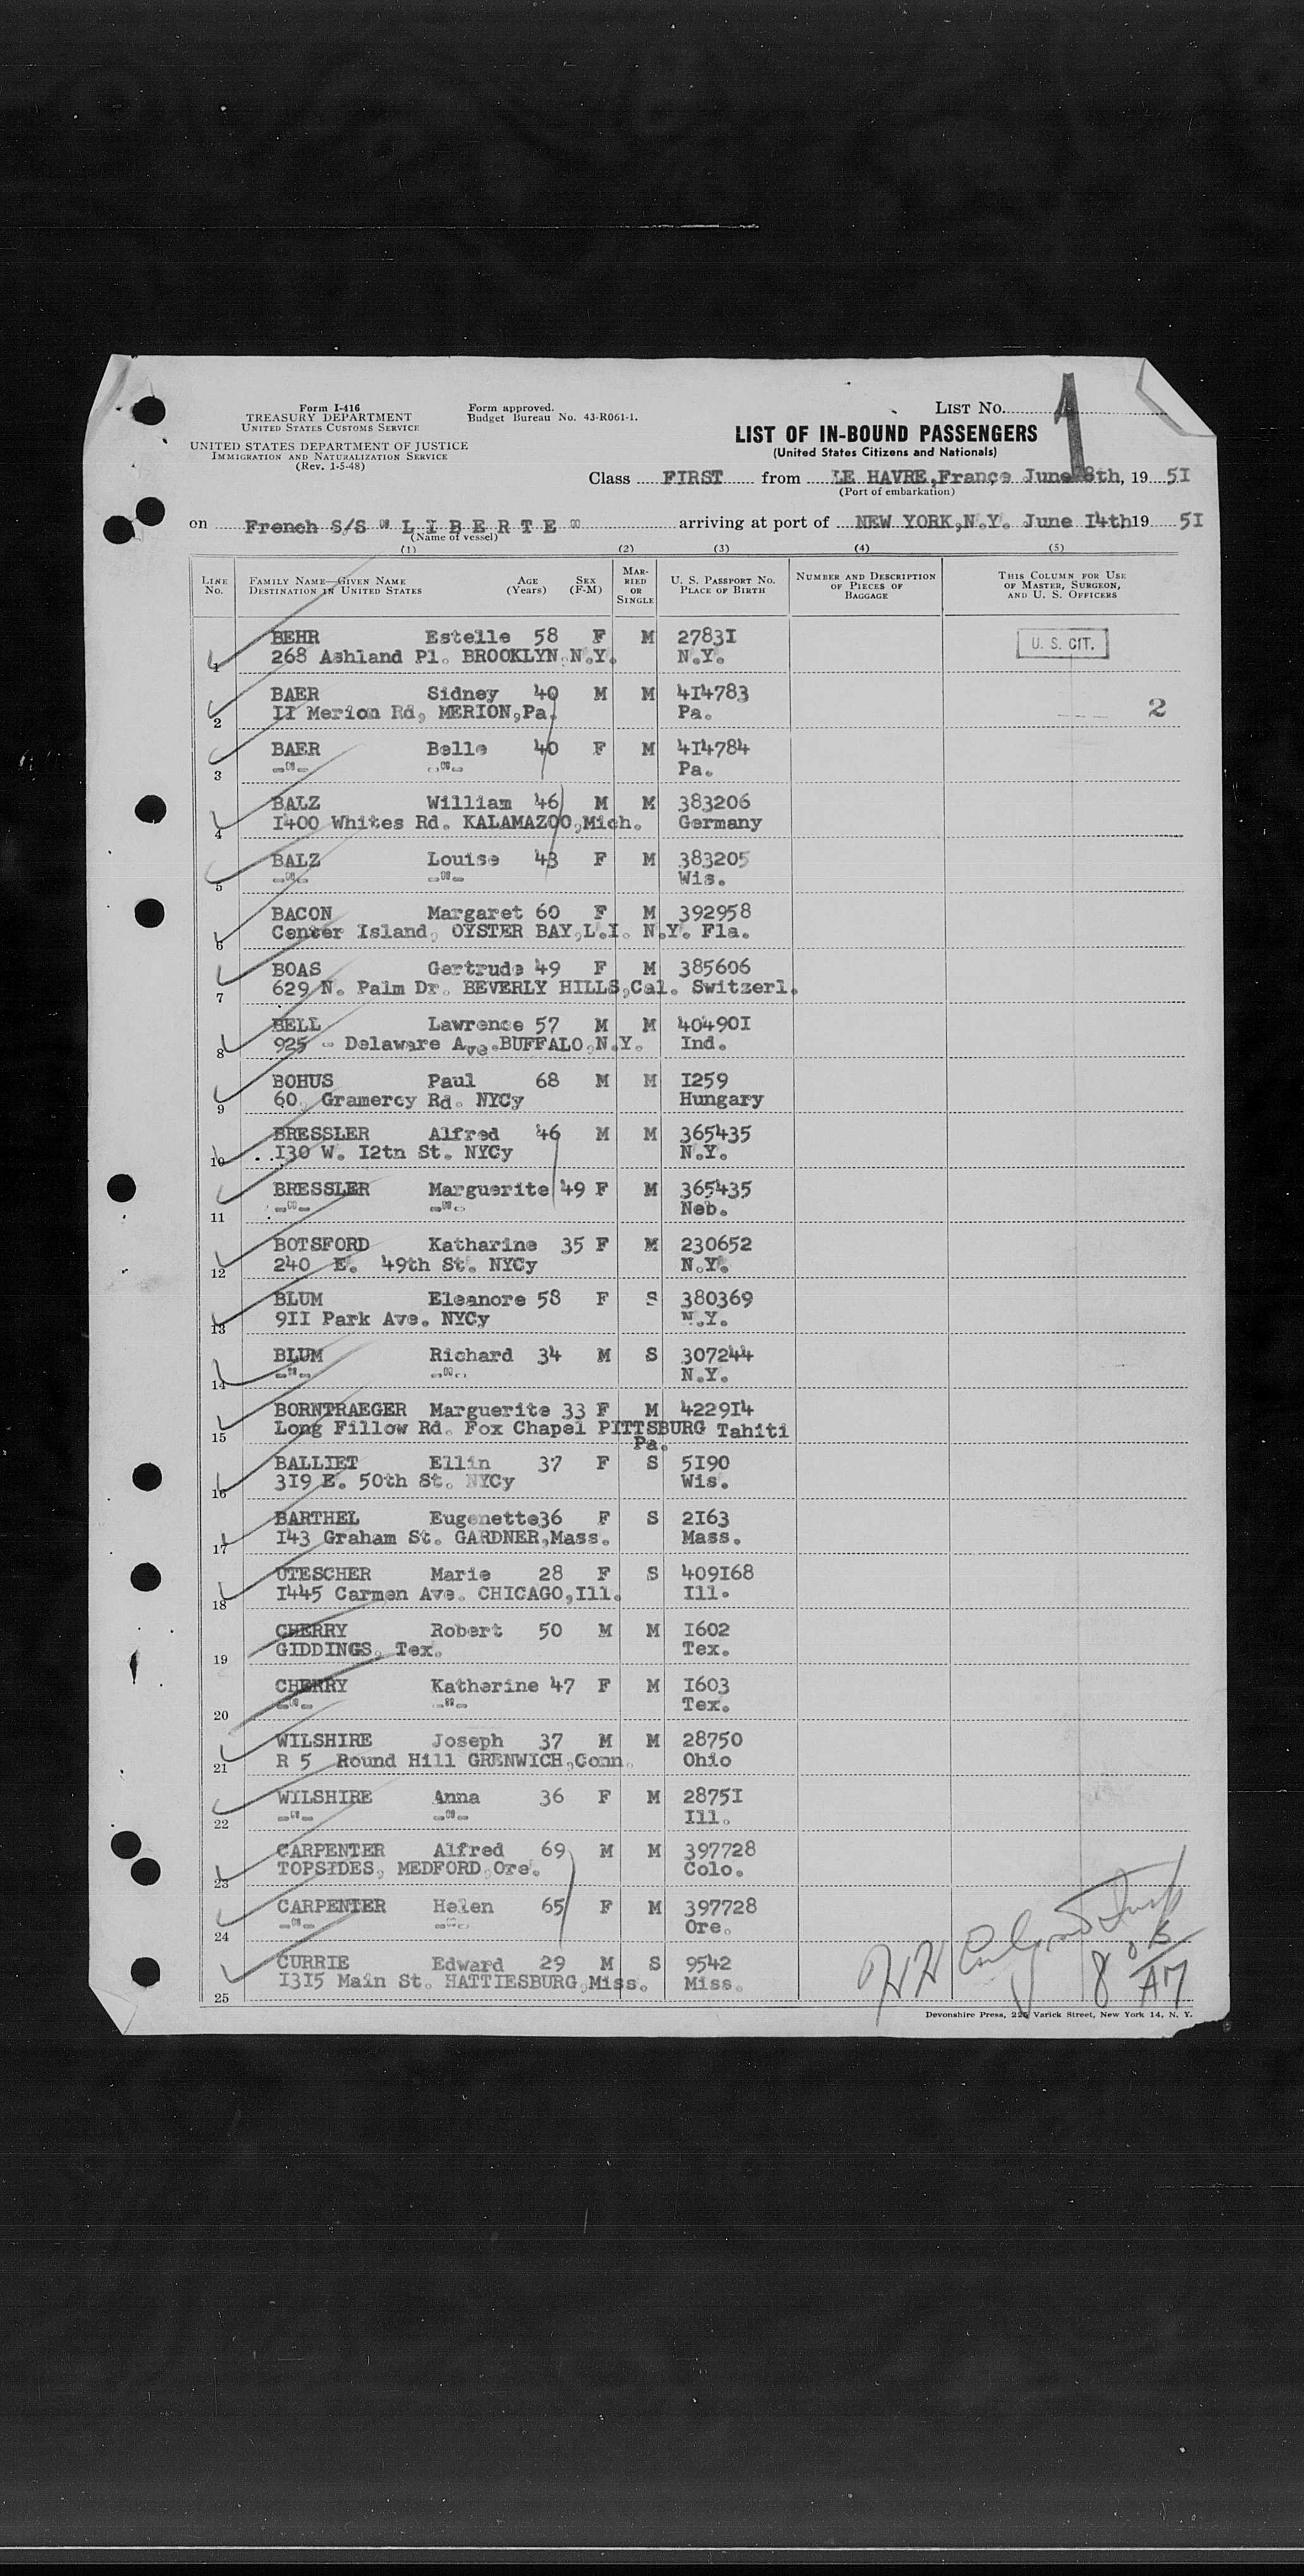 Form I-416
TREASURY DEPARTMENT
UNITED STATES CUSTOMS SERVICE
UNITED STATES DEPARTMENT OF JUSTICE
IMMIGRATION AND NATURALIZATION SERVICE
(Rev. 1-5-48)
Form approved.
Budget Bureau No. 43-R061-1.
LIST NO. 1
LIST OF IN-BOUND PASSENGERS
(United States Citizens and Nationals)
Class FIRST from LE HAVRE,France June 8th, 19 5I
(Port of embarkation)
on French S/S " L I B E R T E " arriving at port of NEW YORK,N.Y. June I4th19 5I
(Name of vessel)
(1) (2) (3) (4) (5)
LINE NO. FAMILY NAME—GIVEN NAME DESTINATION IN UNITED STATES AGE (Years) SEX (F-M) MARRIED OR SINGLE U. S. PASSPORT NO. PLACE OF BIRTH NUMBER AND DESCRIPTION OF PIECES OF BAGGAGE THIS COLUMN FOR USE OF MASTER, SURGEON, AND U. S. OFFICERS
BEHR Estelle 58 F M 2783I
1 268 Ashland Pl. BROOKLYN,N.Y. N.Y. U. S. CIT.
BAER Sidney 40 M M 4I4783
2 II Merion Rd, MERION,Pa. Pa. 2
BAER Belle 40 F M 4I4784
3 -"- -"- Pa.
BALZ William 46 M M 383206
4 I400 Whites Rd. KALAMAZOO,Mich. Germany
BALZ Louise 43 F M 383205
5 -"- -"- Wis.
BACON Margaret 60 F M 392958
6 Center Island, OYSTER BAY,L.I. N.Y. Fla.
BOAS Gertrude 49 F M 385606
7 629 N. Palm Dr. BEVERLY HILLS,Cal. Switzerl.
BELL Lawrence 57 M M 40490I
8 925 - Delaware Ave.BUFFALO,N.Y. Ind.
BOHUS Paul 68 M M I259
9 60, Gramercy Rd. NYCy Hungary
BRESSLER Alfred 46 M M 365435
10 I30 W. I2tn St. NYCy N.Y.
BRESSLER Marguerite 49 F M 365435
11 -"- -"- Neb.
BOTSFORD Katharine 35 F M 230652
12 240 E. 49th St. NYCy N.Y.
BLUM Eleanore 58 F S 380369
13 9II Park Ave. NYCy N.Y.
BLUM Richard 34 M S 307244
14 -"- -"- N.Y.
BORNTRAEGER Marguerite 33 F M 4229I4
15 Long Fillow Rd. Fox Chapel PITTSBURG Tahiti
Pa.
BALLIET Ellin 37 F S 5I90
16 3I9 E. 50th St. NYCy Wis.
BARTHEL Eugenette36 F S 2I63
17 I43 Graham St. GARDNER,Mass. Mass.
UTESCHER Marie 28 F S 409I68
18 I445 Carmen Ave. CHICAGO,Ill. Ill.
CHERRY Robert 50 M M I602
19 GIDDINGS, Tex. Tex.
CHERRY Katherine 47 F M I603
20 -"- -"- Tex.
WILSHIRE Joseph 37 M M 28750
21 R 5 Round Hill GRENWICH,Conn. Ohio
WILSHIRE Anna 36 F M 2875I
22 -"- -"- Ill.
CARPENTER Alfred 69 M M 397728
23 TOPSIDES, MEDFORD,Ore. Colo.
CARPENTER Helen 65 F M 397728
24 -"- -"- Ore.
CURRIE Edward 29 M S 9542
25 I3I5 Main St. HATTIESBURG,Miss. Miss.
Devonshire Press, 225 Varick Street, New York 14, N. Y.